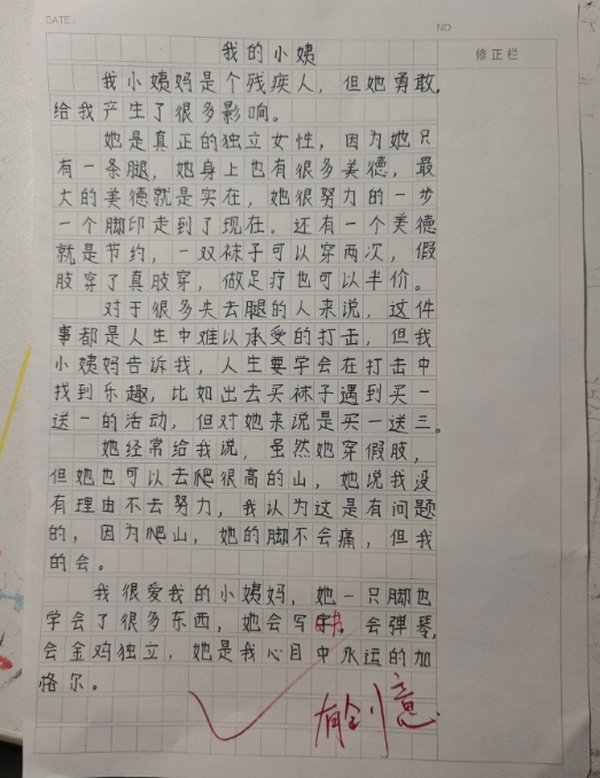 DATE:
NO
修正栏
我的小姨
我小姨妈是个残疾人，但她勇敢，
给我产生了很多影响。
她是真正的独立女性，因为她只
有一条腿，她身上也有很多美德，最
大的美德就是实在，她很努力的一步
一个脚印走到了现在。还有一个美德
就是节约，一双袜子可以穿两次，假
肢穿了真肢穿，做足疗也可以半价。
对于很多失去腿的人来说，这件
事都是人生中难以承受的打击，但我
小姨妈告诉我，人生要学会在打击中
找到乐趣，比如出去买袜子遇到买一
送一的活动，但对她来说是买一送三。
她经常给我说，虽然她穿假肢，
但她也可以去爬很高的山，她说我没
有理由不去努力，我认为这是有问题
的，因为爬山，她的脚不会痛，但我
的会。
我很爱我的小姨妈，她一只脚也
学会了很多东西，她会写书，会弹琴，
会金鸡独立，她是我心目中永运的加
格尔。
有创意